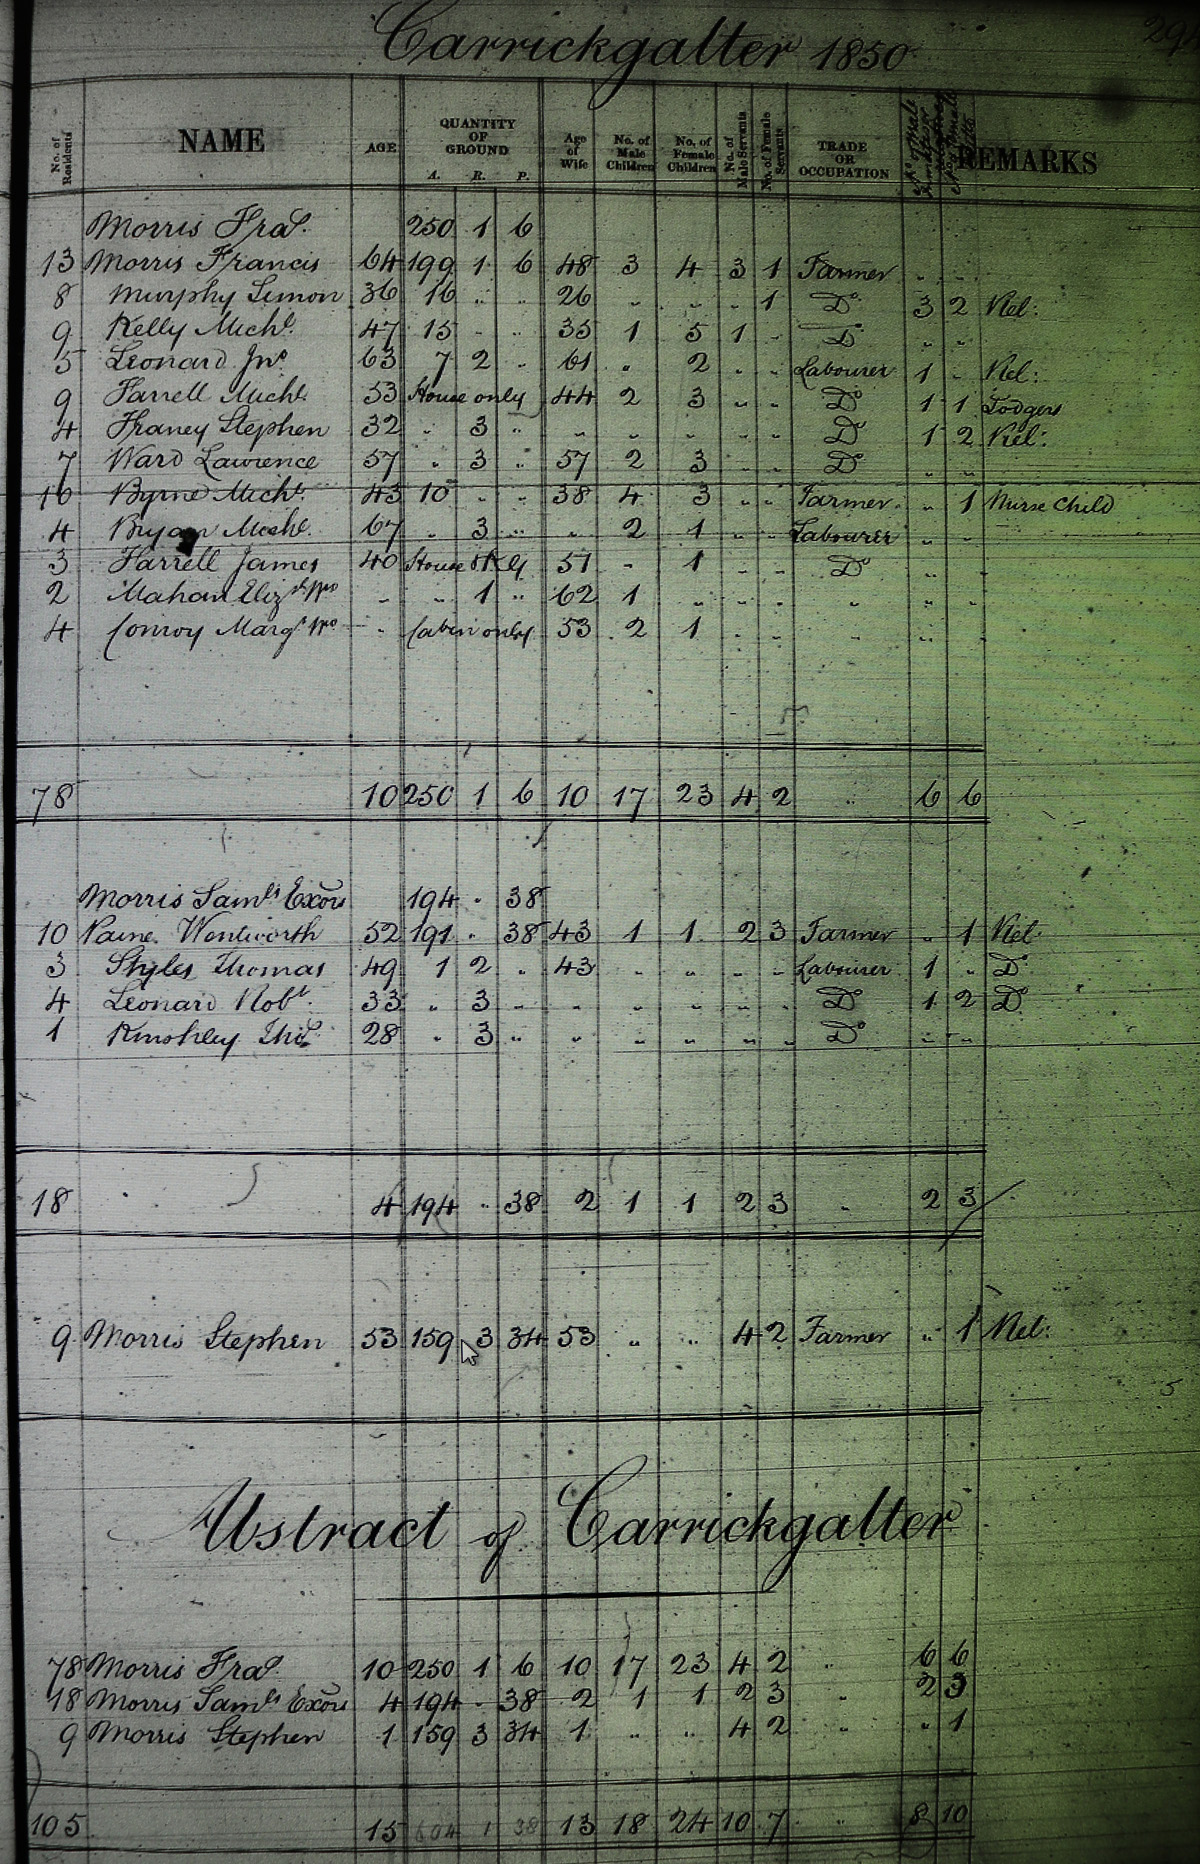 Carrickgalter 1850
No. of Residents NAME AGE QUANTITY OF GROUND A. R. P. Age of Wife No. of Male Children No. of Female Children No. of Male Servants No. of Female Servants TRADE OR OCCUPATION REMARKS
Morris Fras. 250 1 6
13 Morris Francis 64 199 1 6 48 3 4 3 1 Farmer " "
8 Murphy Simon 36 16 " " 26 " " " 1 Do 3 2 Rel:
9 Kelly Michl. 47 15 " " 35 1 5 1 " Do " "
5 Leonard Jno 63 7 2 " 61 " 2 " " Labourer 1 " Rel:
9 Farrell Michl. 53 House only 44 2 3 " " Do 1 1 Lodgers
4 Franey Stephen 32 " 3 " " " " " " Do 1 2 Rel:
7 Ward Lawrence 57 " 3 " 57 2 3 " " Do " "
10 Byrne Michl. 43 10 " " 38 4 3 " " Farmer " 1 Nurse Child
4 Bryan Michl. 67 " 3 " " 2 1 " " Labourer " "
3 Farrell James 40 House & 51 " 1 " " Do " "
2 Mahan Elizth Wo " " 1 " 62 1 " " " " " "
4 Conroy Margt Wo " Cabin only 53 2 1 " " " " "
78 10 250 1 6 10 17 23 4 2 " 6 6
Morris Samls Exors 194 " 38
10 Paine Wentworth 52 191 " 38 43 1 1 2 3 Farmer " 1 Rel:
3 Styles Thomas 49 1 2 " 43 " " " " Labourer 1 " Do
4 Leonard Robt. 33 " 3 " " " " " " Do 1 2 Do
1 Kinshley Thos. 28 " 3 " " " " " " Do " "
18 " 4 194 " 38 2 1 1 2 3 " 2 3
9 Morris Stephen 53 159 3 34 53 " " 4 2 Farmer " 1 Rel:
Abstract of Carrickgalter
78 Morris Fras. 10 250 1 6 10 17 23 4 2 " 6 6
18 Morris Samls Exors 4 194 " 38 2 1 1 2 3 " 2 3
9 Morris Stephen 1 159 3 34 1 " " 4 2 " " 1
105 15 604 1 38 13 18 24 10 7 " 8 10